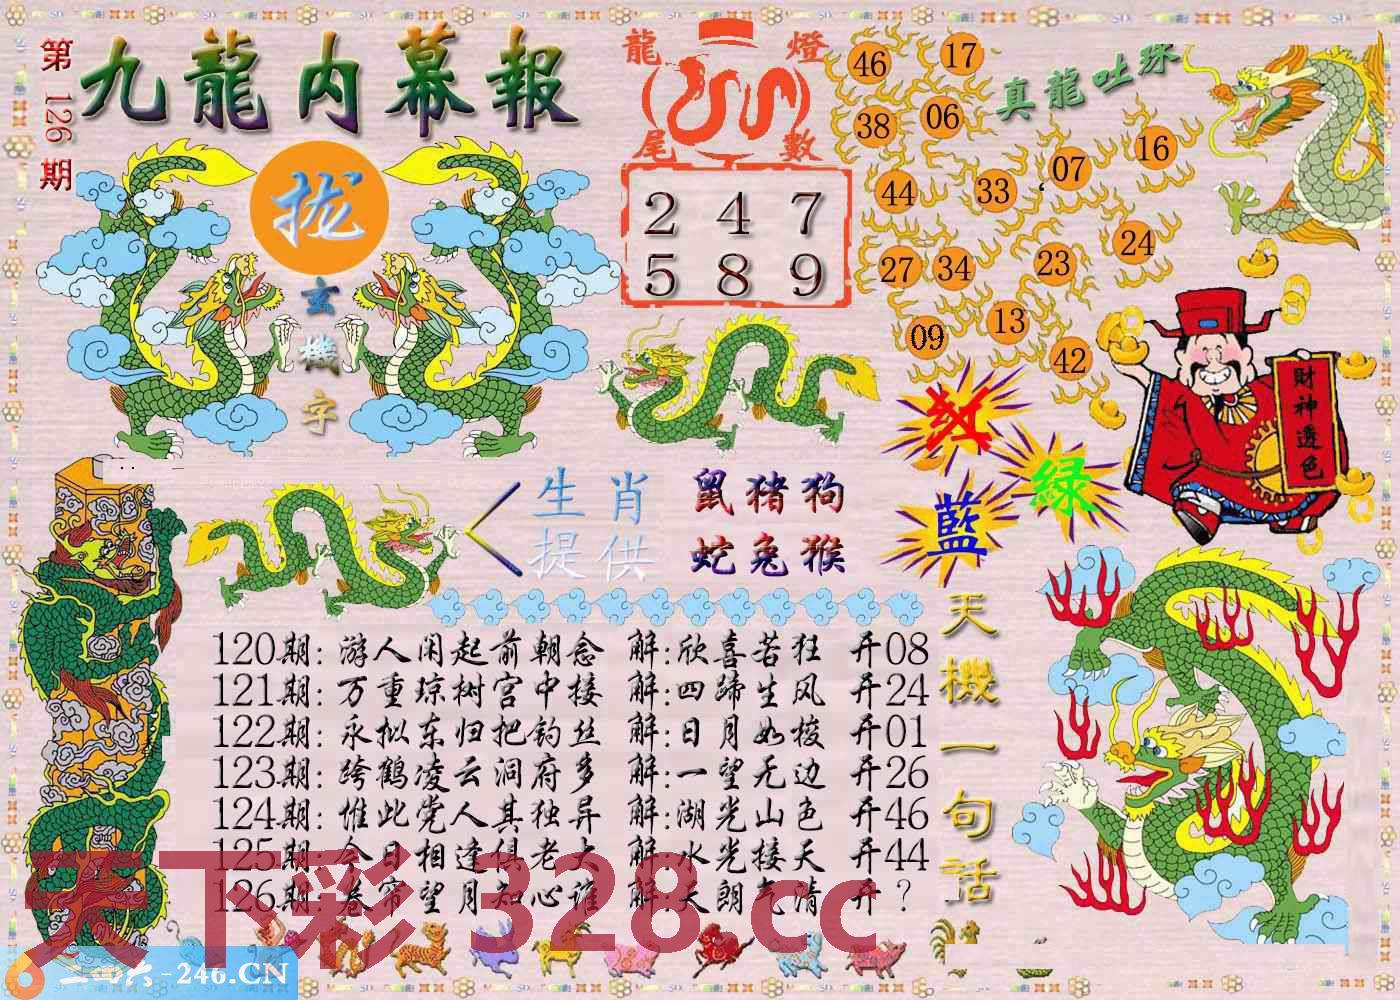 第126期
九龍内幕報
拢
玄機字
龍燈尾數
2 4 7
5 8 9
真龍吐珠
46 17
38 06
44 33 07 16
27 34 23 24
09 13 42
財神透色
紅
绿
藍
生肖提供
鼠猪狗
蛇兔猴
天機一句話
120期: 游人闲起前朝念 解:欣喜若狂 开08
121期: 万重琼树宫中接 解:四蹄生风 开24
122期: 永拟东归把钓丝 解:日月如梭 开01
123期: 跨鹤凌云洞府多 解:一望无边 开26
124期: 惟此党人其独异 解:湖光山色 开46
125期: 今日相逢俱老大 解:水光接天 开44
126期: 卷帘望月知心谁 解:天朗气清 开？
天下彩 328.cc
二四六-246.CN